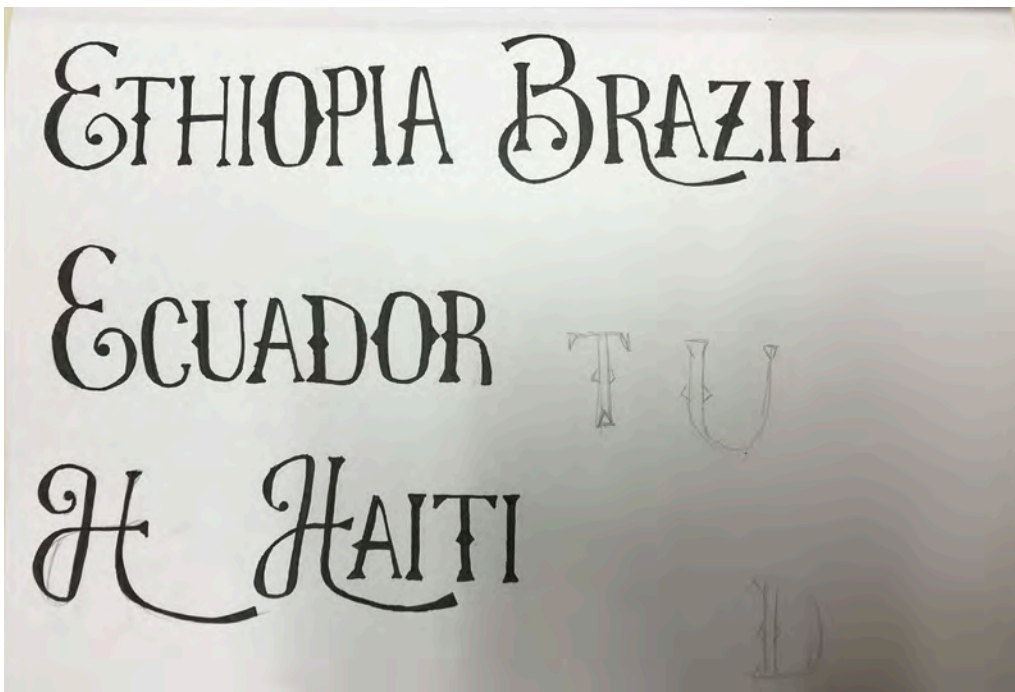 ETHIOPIA BRAZIL
ECUADOR
T U
H HAITI
D